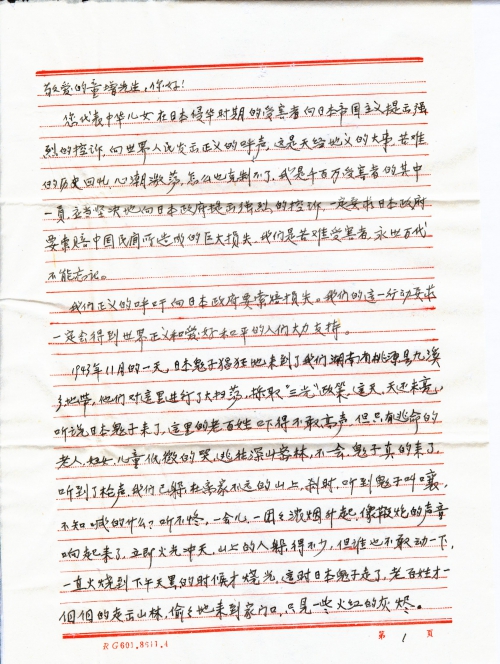 敬爱的童增先生,你好!
您代表中华儿女在日本侵华时期的受害者向日本帝国主义提出强
烈的控诉,向世界人民发出正义的呼声,这是天经地义的大事,苦难
的历史回忆,心潮激荡,怎么也克制不了,我是千百万受害者的其中
一员,应当坚决地向日本政府提出强烈的控诉,一定要求日本政府
要索赔中国民间所造成的巨大损失,我们是苦难受害者,永世万代
不能忘记。
我们正义的呼吁向日本政府要索赔损失。我们的这一行动要求
一定会得到世界正义和爱好和平的人们大力支持。
1943年11月的一天,日本鬼子猖狂地来到了我们湖南省桃源县九溪
乡地带,他们对这里进行了大扫荡,採取"三光"政策,这天,天还未亮,
听说日本鬼子来了,这里的老百姓吓得不敢高声,但只有逃命的
老人,妇女,儿童低微的哭,逃往深山密林,不一会,鬼子真的来了,
听到了枪声,我们已躲在离家不远的山上,刹时,听到鬼子叫嚷,
不知喊的什么?听不懂,一会儿,一团团浓烟升起,像鞭炮的声音
响起来了,立即火光冲天,山上的人躲得不少,但谁也不敢动一下,
一直火烧到下午天黑的时候才烧光,这时日本鬼子走了,老百姓才一
個個的走出山林,偷偷地来到家门口,只见一些火红的灰烬。
RG601.8511.4
第 1 页